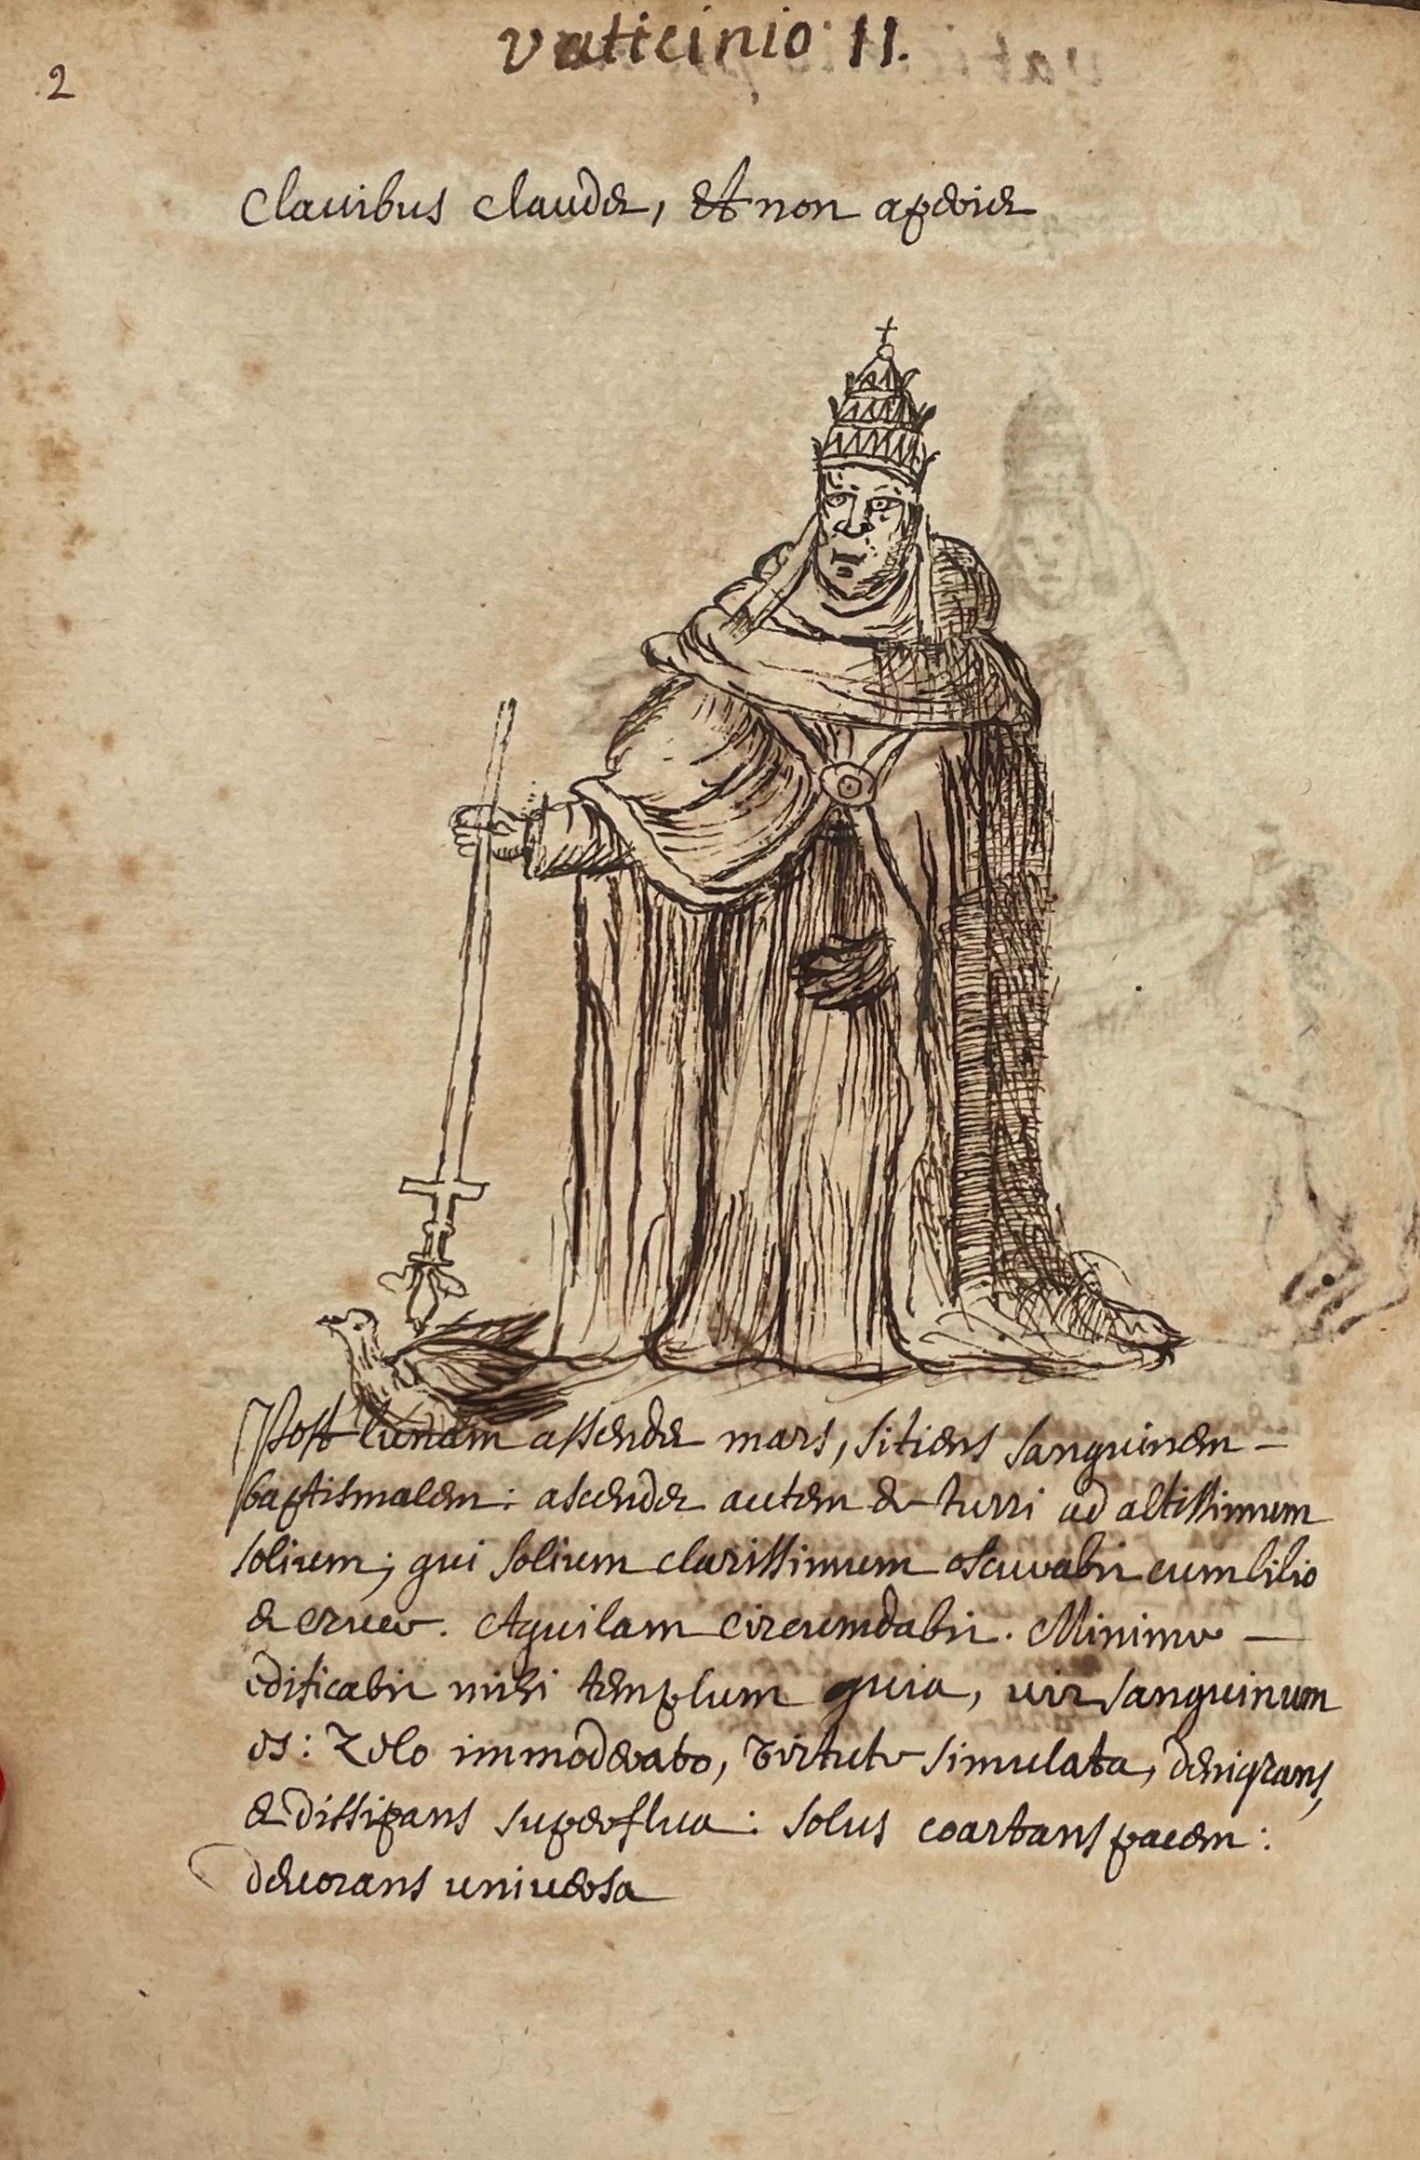 vaticinio II.
2
Clavibus claudet, et non aperiet
Post lunam assendet mars, sitiens sanguinem
baptismalem: ascendet autem e turri ad altissimum
solium; qui solium clarissimum oscurabit cum lilio
et cruce. Aquilam circumdabit. Minime
edificabit mihi templum quia, vir sanguinum
es: Zelo immoderato, virtute simulata, denigrans,
et dissipans superflua: solus coartans pacem:
devorans universa